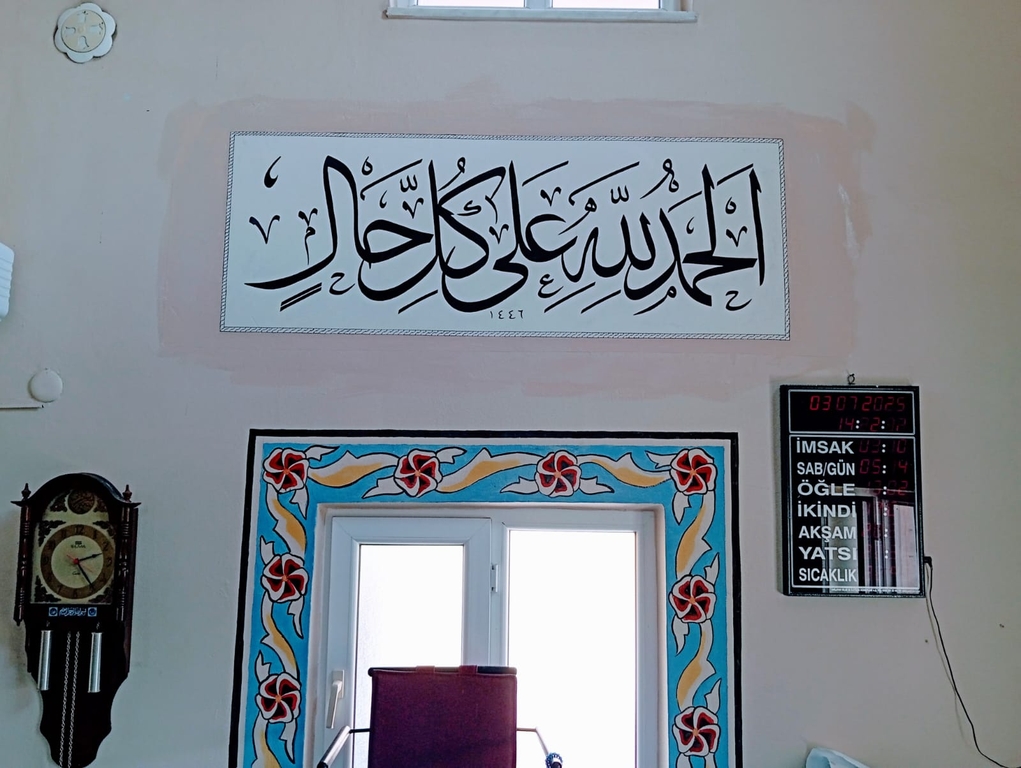 اَلْحَمْدُ لِلّٰهِ عَلَى كُلِّ حَالٍ
١٤٤٦
03 07 2025
İMSAK
SAB/GÜN
ÖĞLE
İKİNDİ
AKŞAM
YATSI
SICAKLIK